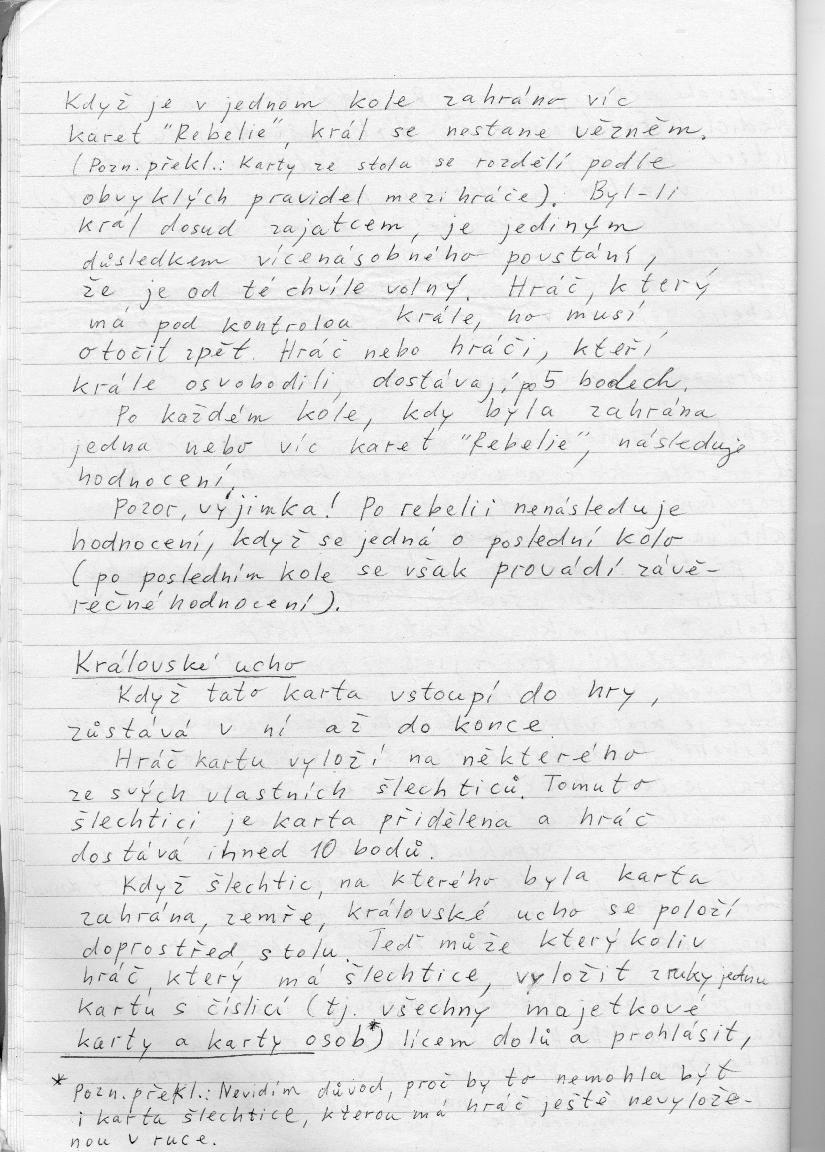 Když je v jednom kole zahráno víc
karet "Rebelie", král se nestane vězněm.
(Pozn. překl.: Karty ze stolu se rozdělí podle
obvyklých pravidel mezi hráče). Byl-li
král dosud zajatcem, je jediným
důsledkem vícenásobného povstání,
že je od té chvíle volný. Hráč, který
má pod kontrolou krále, ho musí
otočit zpět. Hráč nebo hráči, kteří
krále osvobodili, dostávají po 5 bodech.
Po každém kole, kdy byla zahrána
jedna nebo víc karet "Rebelie", následuje
hodnocení.
Pozor, výjimka! Po rebelii nenásleduje
hodnocení, když se jedná o poslední kolo
(po posledním kole se však provádí závě-
rečné hodnocení).
Královské ucho
Když tato karta vstoupí do hry,
zůstává v ní až do konce.
Hráč kartu vyloží na některého
ze svých vlastních šlechticů. Tomuto
šlechtici je karta přidělena a hráč
dostává ihned 10 bodů.
Když šlechtic, na kterého byla karta
zahrána, zemře, královské ucho se položí
doprostřed stolu. Teď může kterýkoliv
hráč, který má šlechtice, vyložit z ruky jednu
kartu s číslicí (tj. všechny majetkové
karty a karty osob*) lícem dolů a prohlásit,
* Pozn. překl.: Nevidím důvod, proč by to nemohla být
i karta šlechtice, kterou má hráč ještě nevylože-
nou v ruce.